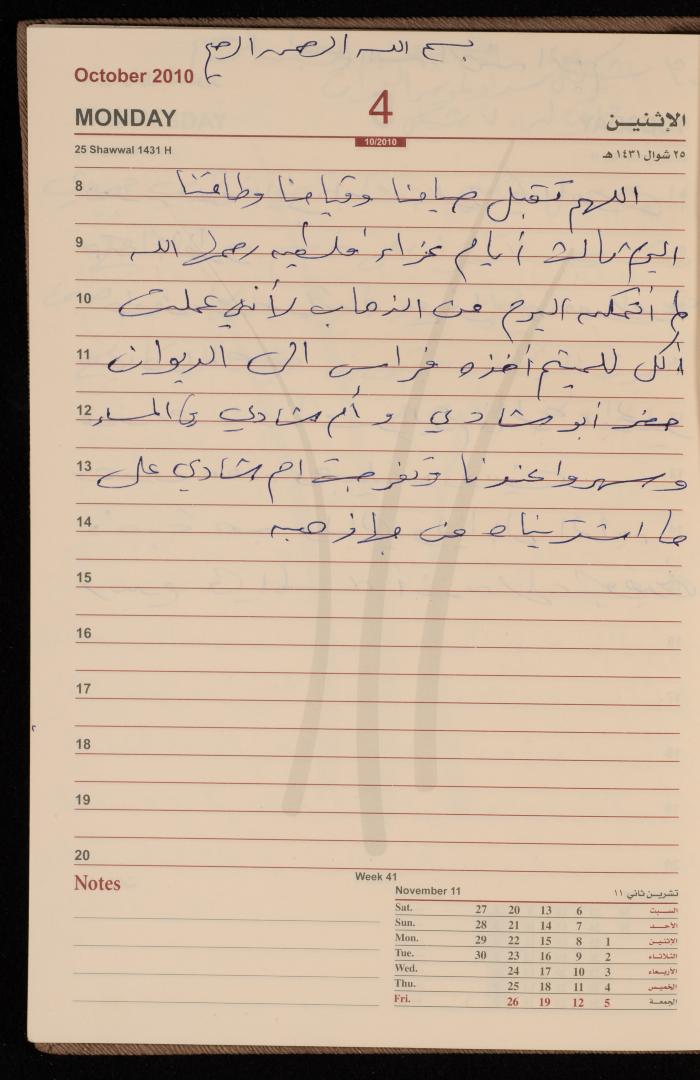 بسم الله الرحمن الرحيم
October 2010
MONDAY 4 الإثنين
10/2010
25 Shawwal 1431 H ٢٥ شوال ١٤٣١ هـ
8 اللهم تقبل صيامنا وقيامنا وطاعتنا
9 اليوم ثالث أيام عزاء رحمها الله
10 لم أتمكن اليوم من الذهاب لأني عملت
11 أكل للميتم أخذه فراس الى الديوان
12 حضر أبو شادي و أم شادي في المساء
13 وسهروا عندنا وتفرجت ام شادي على
14 ما اشتريناه من
15
16
17
18
19
20
Notes
Week 41
November 11 تشرين ثاني ١١
Sat. 27 20 13 6 السبت
Sun. 28 21 14 7 الأحد
Mon. 29 22 15 8 1 الاثنين
Tue. 30 23 16 9 2 الثلاثاء
Wed. 24 17 10 3 الأربعاء
Thu. 25 18 11 4 الخميس
Fri. 26 19 12 5 الجمعة